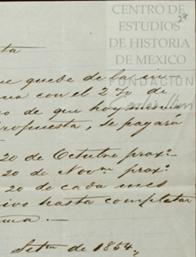 CENTRO DE
ESTUDIOS
DE HISTORIA
DE MEXICO
FUNDACIÓN
ta
que quede de la
con el 2 % de
de que hoy
propuesta, se pagará
20 de Octubre prox.
20 de Nov. prox.
20 de cada mes
ivo hasta completar
ma.
Set. de 1854.